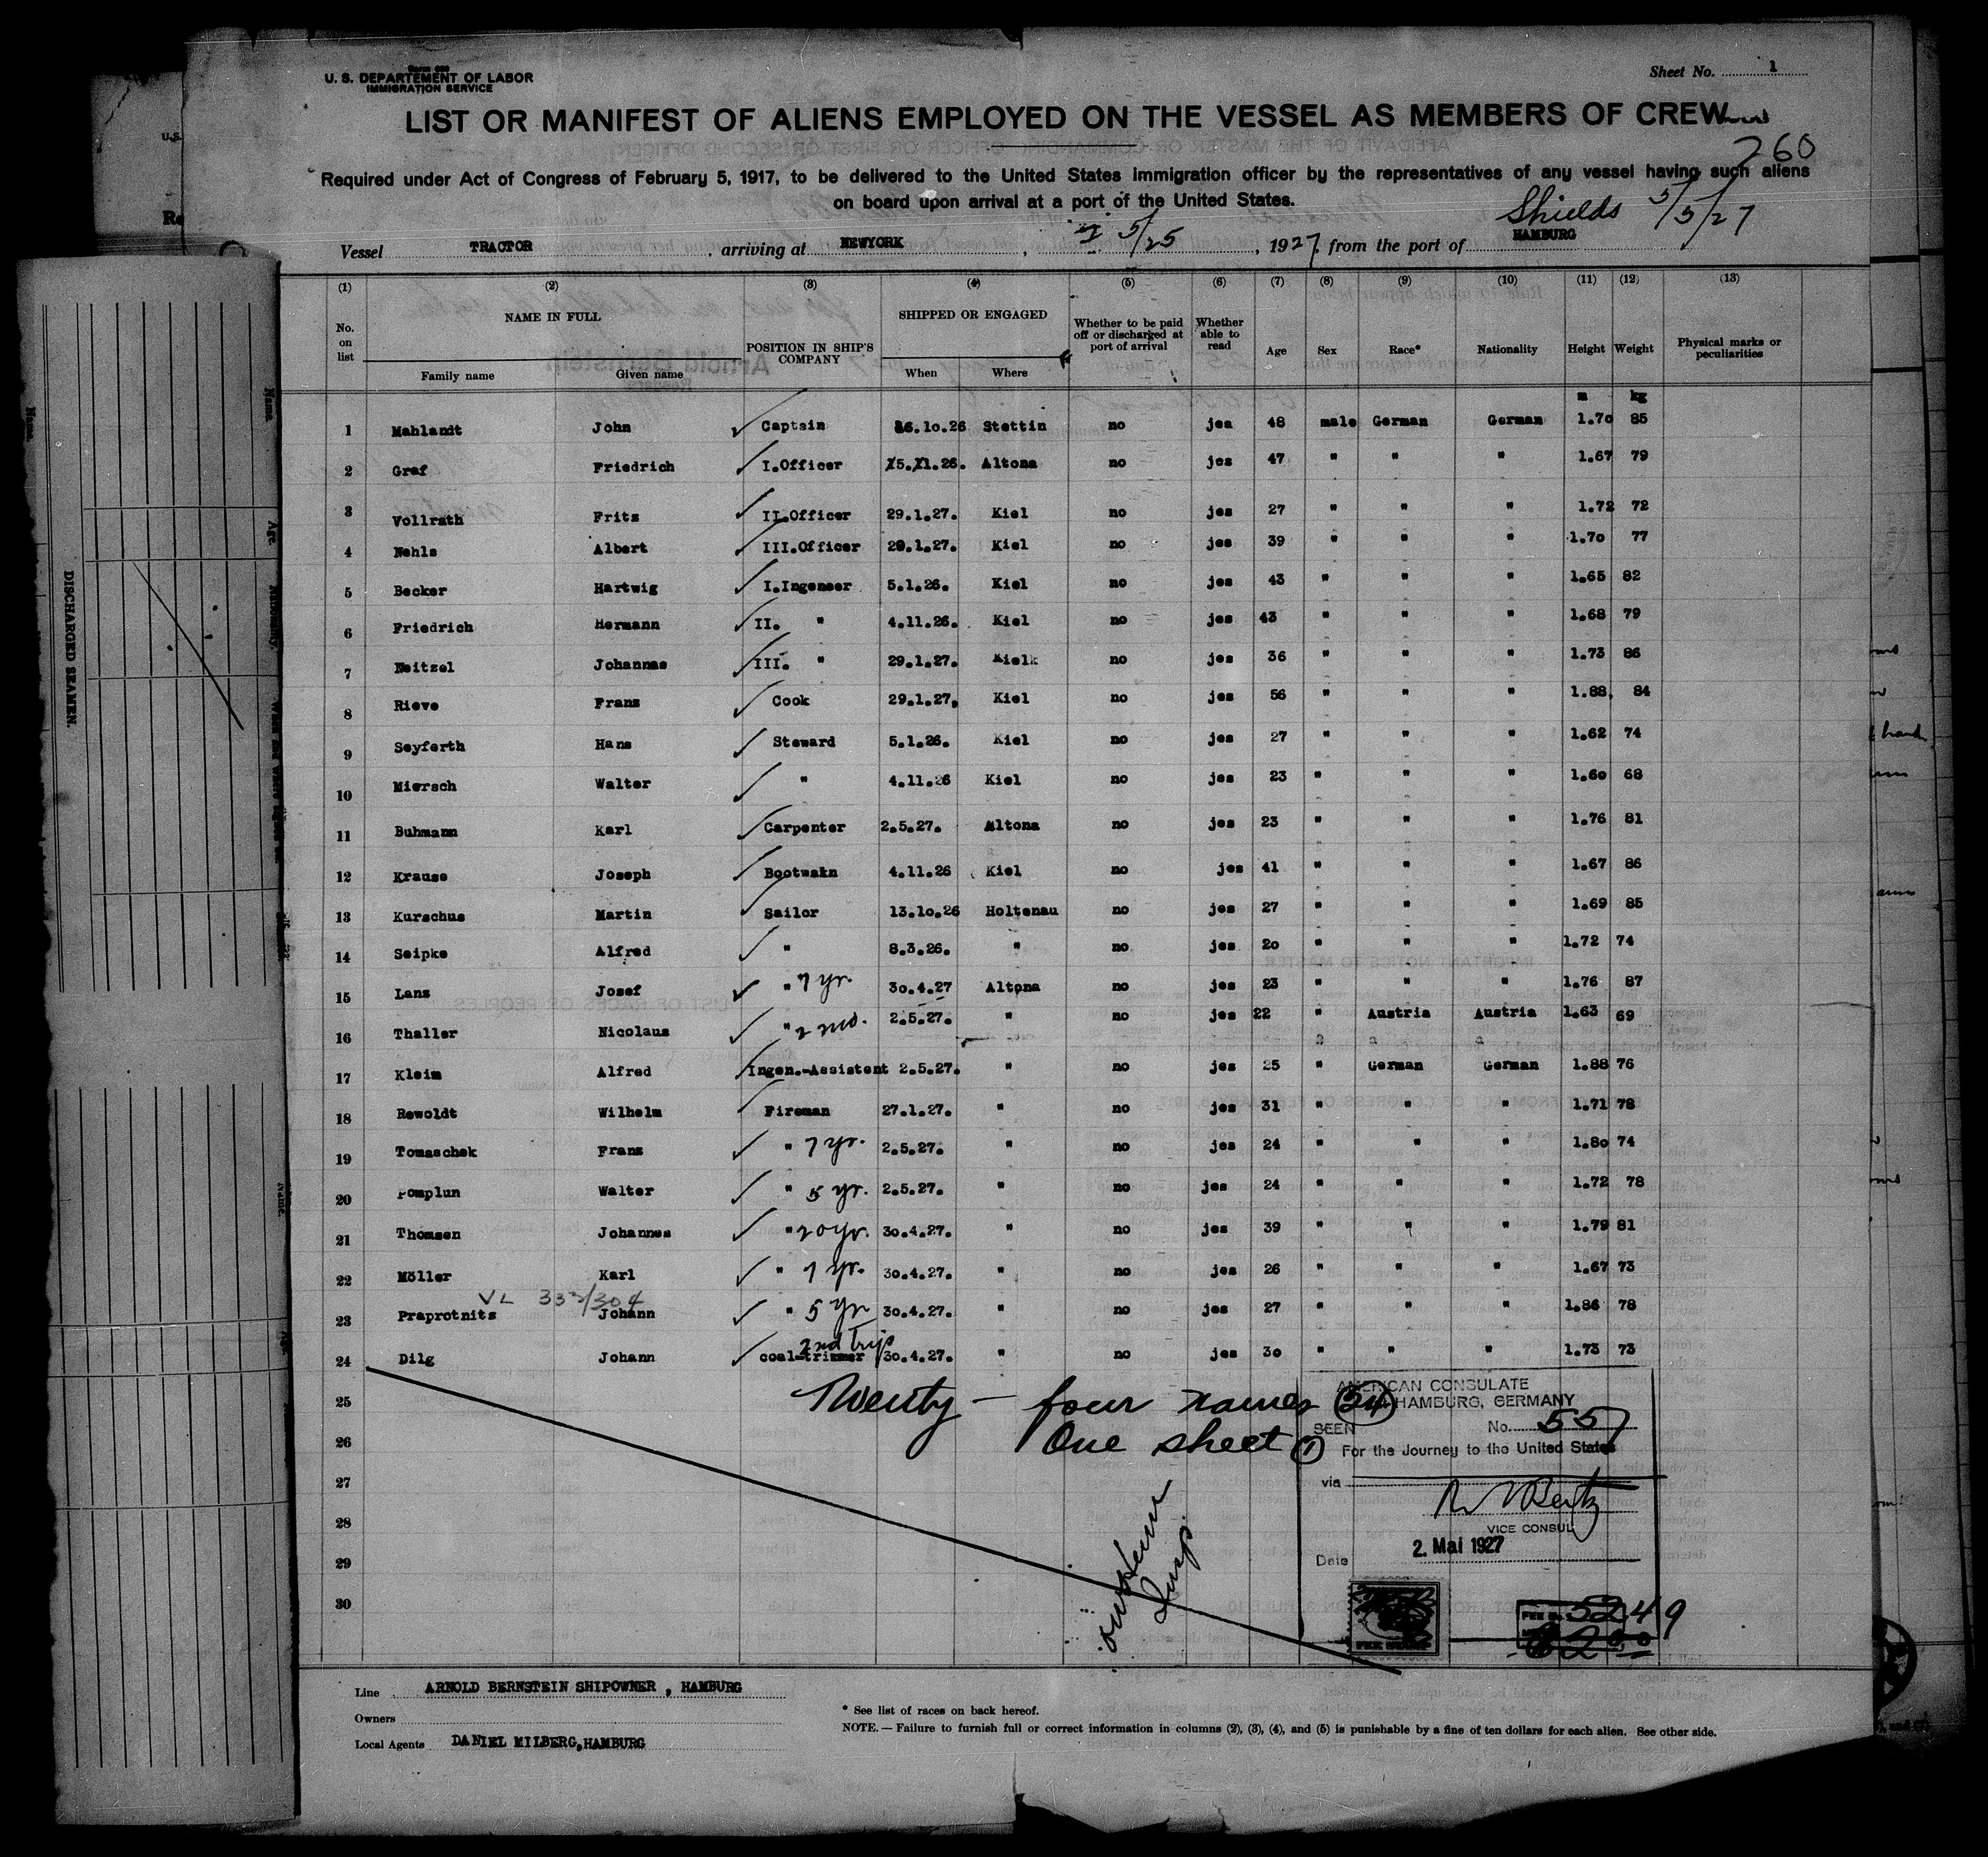 Form 689
U. S. DEPARTEMENT OF LABOR
IMMIGRATION SERVICE
Sheet No. 1
LIST OR MANIFEST OF ALIENS EMPLOYED ON THE VESSEL AS MEMBERS OF CREW
260
Required under Act of Congress of February 5, 1917, to be delivered to the United States immigration officer by the representatives of any vessel having such aliens
on board upon arrival at a port of the United States.
Shields 5/5/27
Vessel TRACTOR , arriving at NEWYORK , 5/25 , 1927, from the port of HAMBURG
(1) (2) (3) (4) (5) (6) (7) (8) (9) (10) (11) (12) (13)
No. on list NAME IN FULL Family name Given name POSITION IN SHIP'S COMPANY SHIPPED OR ENGAGED When Where Whether to be paid off or discharged at port of arrival Whether able to read Age Sex Race* Nationality Height Weight Physical marks or peculiarities
m kg
1 Mahlandt John Captain 26.10.26 Stettin no jes 48 male German German 1.70 85
2 Graf Friedrich I.Officer 15.11.26. Altona no jes 47 " " " 1.67 79
3 Vollrath Fritz II.Officer 29.1.27. Kiel no jes 27 " " " 1.72 72
4 Nehls Albert III.Officer 29.1.27. Kiel no jes 39 " " " 1.70 77
5 Becker Hartwig I.Ingeneer 5.1.26. Kiel no jes 43 " " " 1.65 82
6 Friedrich Hermann II. " 4.11.26. Kiel no jes 43 " " " 1.68 79
7 Neitzel Johannas III. " 29.1.27. Kielk no jes 36 " " " 1.73 86
8 Rieve Franz Cook 29.1.27, Kiel no jes 56 " " " 1.88. 84
9 Seyferth Hans Steward 5.1.26. Kiel no jes 27 " " " 1.62 74
10 Miersch Walter " 4.11.26 Kiel no jes 23 " " " 1.60 68
11 Buhmann Karl Carpenter 2.5.27. Altona no jes 23 " " " 1.76 81
12 Krause Joseph Bootwakn 4.11.26 Kiel no jes 41 " " " 1.67 86
13 Kurschus Martin Sailor 13.10.26 Holtenau no jes 27 " " " 1.69 85
14 Seipke Alfred " 8.3.26. " no jes 20 " " " 1.72 74
15 Lanz Josef " 7 yr. 30.4.27 Altona no jes 23 " " " 1.76 87
16 Thaller Nicolaus " 2 mo. 2.5.27. " no jes 22 " Austria Austria 1.63 69
17 Kleim Alfred Ingen.-Assistent 2.5.27. " no jes 25 " German German 1.88 76
18 Rewoldt Wilhelm Fireman 27.1.27. " no jes 31 " " " 1.71 78
19 Tomaschek Franz " 7 yr. 2.5.27. " no jes 24 " " " 1.80 74
20 Pomplun Walter " 5 yr. 2.5.27. " no jes 24 " " " 1.72 78
21 Thomsen Johannes " 20 yr. 30.4.27. " no jes 39 " " " 1.79 81
22 Möller Karl " 7 yr. 30.4.27. " no jes 26 " " " 1.67 73
VL 332/304
23 Praprotnits Johann " 5 yr 30.4.27. " no jes 27 " " " 1.86 78
2nd trip
24 Dilg Johann coal-trimmer 30.4.27. " no jes 30 " " " 1.73 73
25
26
27
28
29
30
Twenty - four names (24)
One sheet (1)
Insp.
AMERICAN CONSULATE
HAMBURG, GERMANY
SEEN No. 557
For the Journey to the United States
via
VICE CONSUL
Date 2. Mai 1927
FEE No. 5249
Line ARNOLD BERNSTEIN SHIPOWNER , HAMBURG
Owners
Local Agents DANIEL MILBERG, HAMBURG
* See list of races on back hereof.
NOTE. — Failure to furnish full or correct information in columns (2), (3), (4), and (5) is punishable by a fine of ten dollars for each alien. See other side.
DISCHARGED SEAMEN.
Name.
Age.
Nationality.